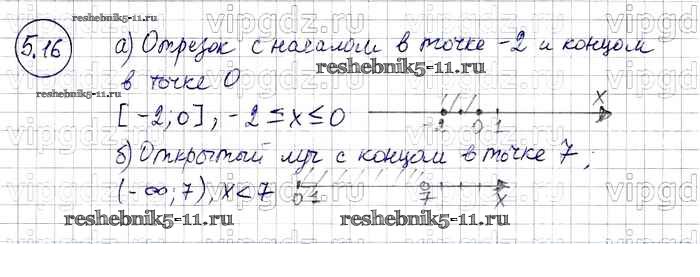 reshebnik5-11.ru
5.16
а) Отрезок с началом в точке -2 и концом
reshebnik5-11.ru
в точке 0
reshebnik5-11.ru
[-2;0], -2 ≤ x ≤ 0
-2 0 1 x
б) Открытый луч с концом в точке 7;
(-∞;7), x < 7
0 1 7 x
reshebnik5-11.ru reshebnik5-11.ru